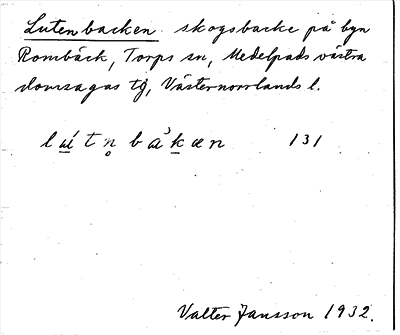 Lutenbacken skogsbacke på byn
Rombäck, Torps sn, Medelpads västra
domsagas tg, Västernorrlands l.
131
Valter Jansson 1932.